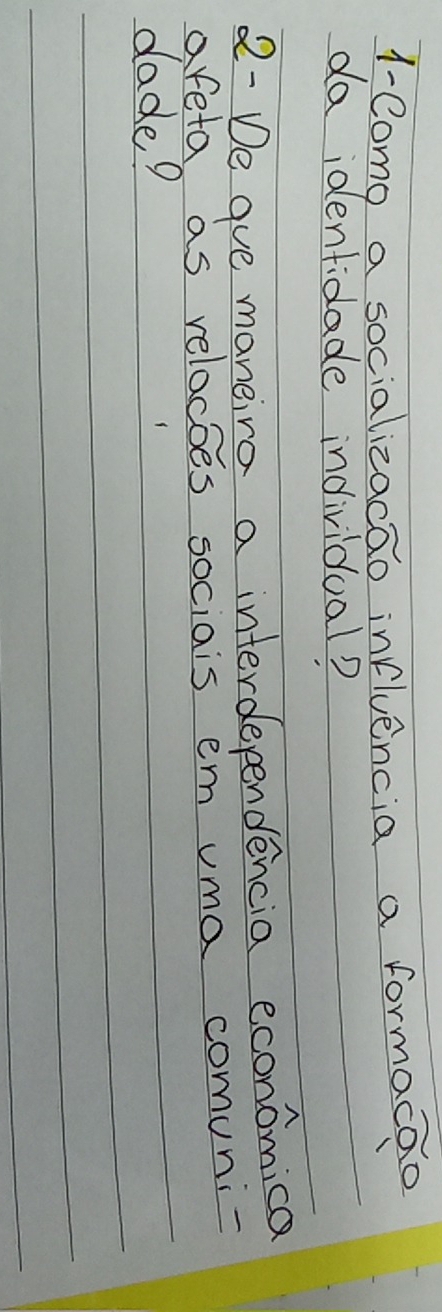 1-Como a socialização influência a formação
da identidade individual?
2- De que maneira a interdependência econômica
afeta as relações sociais em uma comuni-
dade?